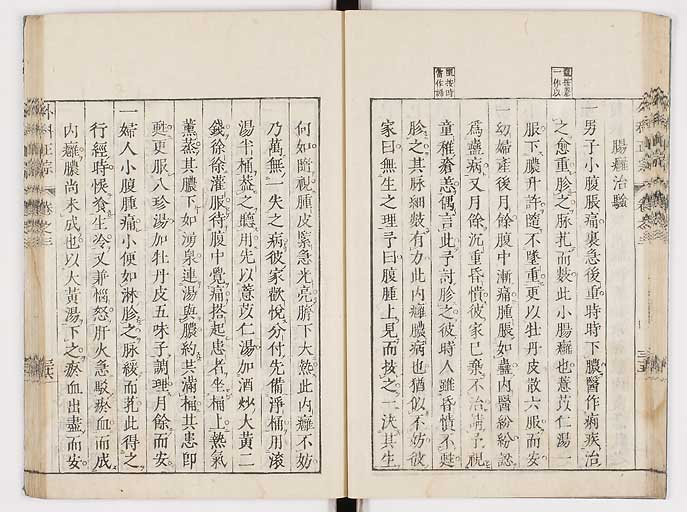 腸癰治驗
一男子小腹脹痛裏急後重時時下膿醫作痢疾治
之愈重胗之脉芤而數此小腸癰也薏苡仁湯一
服下膿升許隨不墜重更以牡丹皮散六服而安
一幼婦產後月餘腹中漸痛腫脹如蠱内醫紛紛認
爲蠱病又月餘沉重昏憒彼家已棄不治請予視
童稚瘡恙偶言此予討胗之彼時人雖昏憒不甦
胗之其脉細數有力此内癰膿病也猶似不妨彼
家曰無生之理予曰腹腫上見而按之一決其生
何如隨視腫皮緊急光亮臍下大熱此内癰不妨
乃萬無一失之病彼家歡悅分付先備淨桶用滾
湯半桶葢之聽用先以薏苡仁湯加酒炒大黄二
錢徐徐灌服待腹中覺痛搭起患者坐桶上熱氣
薰蒸其膿下如湧泉連湯與膿約其滿桶其患即
甦更服八珍湯加牡丹皮五味子調理月餘而安
一婦人小腹腫痛小便如淋胗之脉緩而芤此得之
行經時候食生冷又兼惱怒肝火急馭瘀血而成
内癰膿尚未成也以大黄湯下之瘀血出盡而安
外科正宗
卷之三